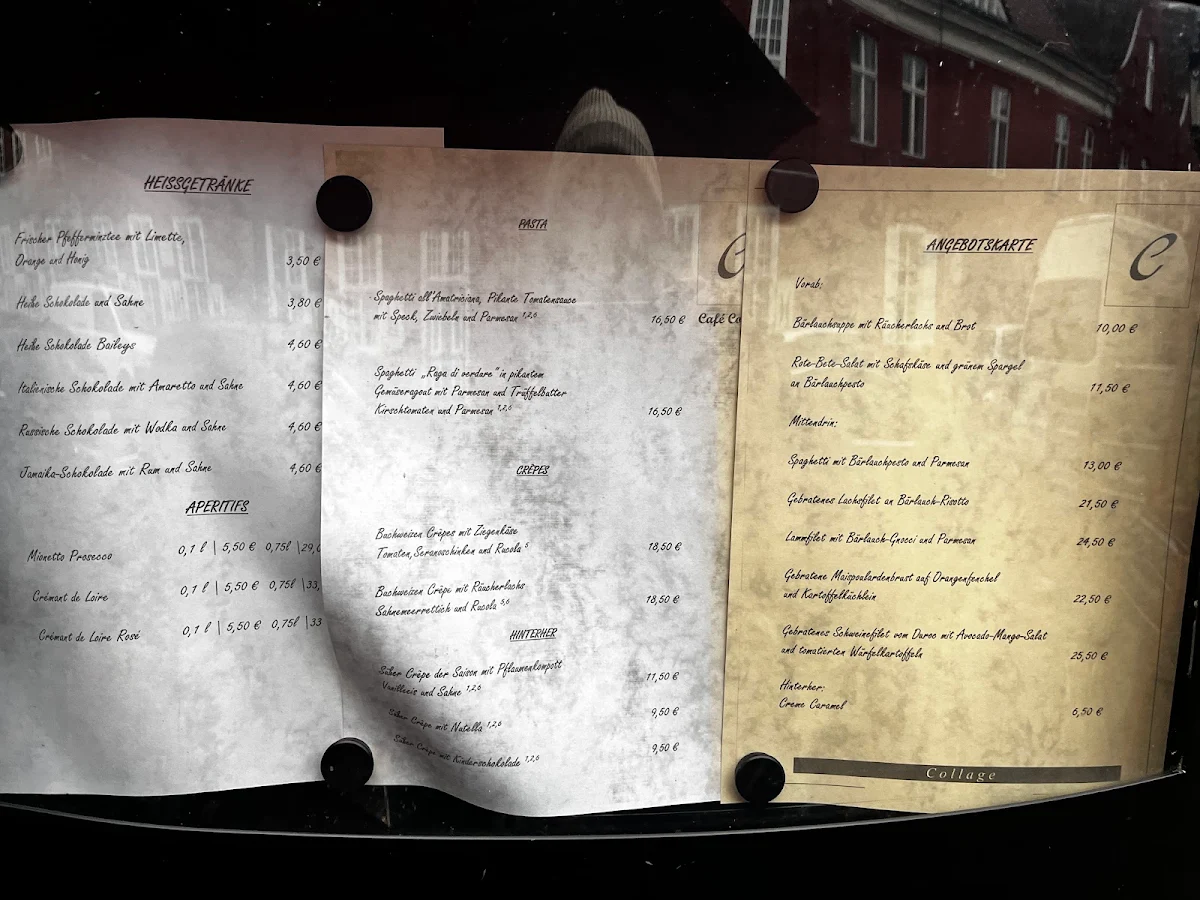 HEISSGETRÄNKE
Frischer Pfefferminztee mit Limette,
Orange und Honig 3,50 €
Heiße Schokolade und Sahne 3,80 €
Heiße Schokolade Baileys 4,60 €
Italienische Schokolade mit Amaretto und Sahne 4,60 €
Russische Schokolade mit Wodka und Sahne 4,60 €
Jamaika-Schokolade mit Rum und Sahne 4,60 €
APERITIFS
Mionetto Prosecco 0,1 l | 5,50 € 0,75l |29,
Crémant de Loire 0,1 l | 5,50 € 0,75l |33,
Crémant de Loire Rosé 0,1 l | 5,50 € 0,75l |33
PASTA
Spaghetti all'Amatriciana, Pikante Tomatensauce
mit Speck, Zwiebeln und Parmesan 1,2,6 16,50 €
Spaghetti „Ragu di verdure" in pikantem
Gemüseragout mit Parmesan und Trüffelbutter
Kirschtomaten und Parmesan 1,2,6 16,50 €
CRÊPES
Buchweizen Crêpes mit Ziegenkäse
Tomaten, Seranoschinken und Rucola 5 18,50 €
Buchweizen Crêpe mit Räucherlachs
Sahnemeerrettich und Rucola 5,6 18,50 €
HINTERHER
Süßer Crêpe der Saison mit Pflaumenkompott 11,50 €
Vanilleeis und Sahne 1,2,6
Süßer Crêpe mit Nutella 1,2,6 9,50 €
Süßer Crêpe mit Kinderschokolade 1,2,6 9,50 €
C
Café Co
ANGEBOTSKARTE
C
Vorab:
Bärlauchsuppe mit Räucherlachs und Brot 10,00 €
Rote-Bete-Salat mit Schafskäse und grünem Spargel
an Bärlauchpesto 11,50 €
Mittendrin:
Spaghetti mit Bärlauchpesto und Parmesan 13,00 €
Gebratenes Lachsfilet an Bärlauch-Risotto 21,50 €
Lammfilet mit Bärlauch-Gnocci und Parmesan 24,50 €
Gebratene Maispoulardenbrust auf Orangenfenchel
und Kartoffelküchlein 22,50 €
Gebratenes Schweinefilet vom Duroc mit Avocado-Mango-Salat
und tomatierten Würfelkartoffeln 25,50 €
Hinterher:
Creme Caramel 6,50 €
Collage